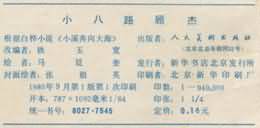 小八路顾杰
根据白桦小说《小溪奔向大海》 出版者: 人民美术出版社
改编者: 姚玉宽
绘者: 马廷奎 发行者: 新华书店北京发行所
封面绘者: 张祖英 印刷者: 北京新华印刷厂
1980年9月第1版第1次印刷 印数: 1—940,000
开本: 787×1092毫米1/64 印张: 1 1/4
统一书号: 8027·7545 定价: 0.16元